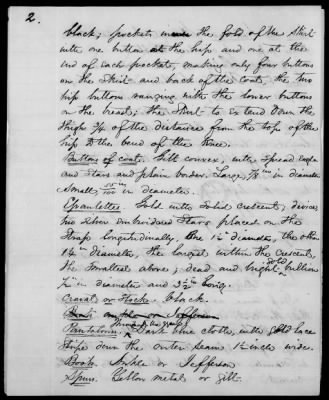 2.
black; pockets in the fold of the skirt
with one button at the hip and one at the
end of each pocket, making only four buttons
on the skirt and back of the coat, the two
hip buttons ranging with the lower buttons
on the breast; the skirt to extend down the
thigh 3/4 of the distance from the top of the
hip to the bend of the Knee.
Buttons of coat: Gilt convex, with Spread eagle
and stars and plain border. Large, 7/8 in diameter
Small, in diameter.
Epaulettes Gold with solid crescent; device,
two silver embroidered stars placed on the
strap longitudinally, One 1 1/2 diameter, the other
1 1/4 in diameter, the largest within the crescent,
the smallest above; dead and bright gold bullion
1/2 in diameter and 3 1/2 long.
Cravat or Stock. black.
Boots ankle or Jefferson
Pantaloons, Dark blue cloth, with gold lace
stripe down the outer seam 1 1/2 inch wide.
Boots. Ankle or Jefferson
Spurs. Yellow metal or gilt.